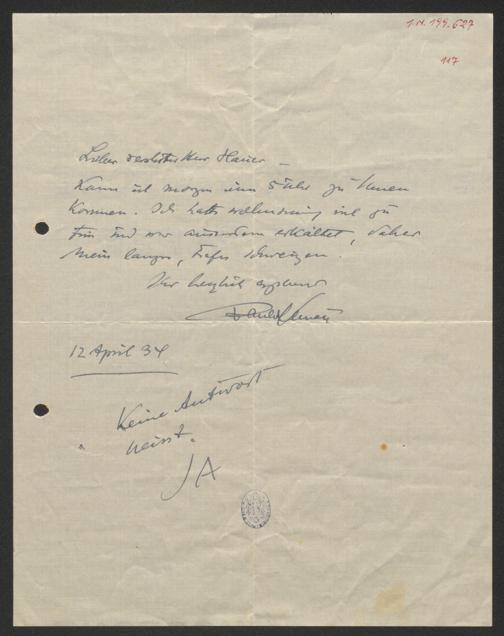 I.N. 199.627
117
Lieber verehrter Herr Hauer –
Kann ich morgen um 5 Uhr zu Ihnen
kommen. Ich hatte wahnsinnig viel zu
tun und war ausserdem erkältet, daher
mein langes, tiefes Schweigen.
Ihr herzlich ergebener
12 April 34
Keine Antwort
heisst.
JA